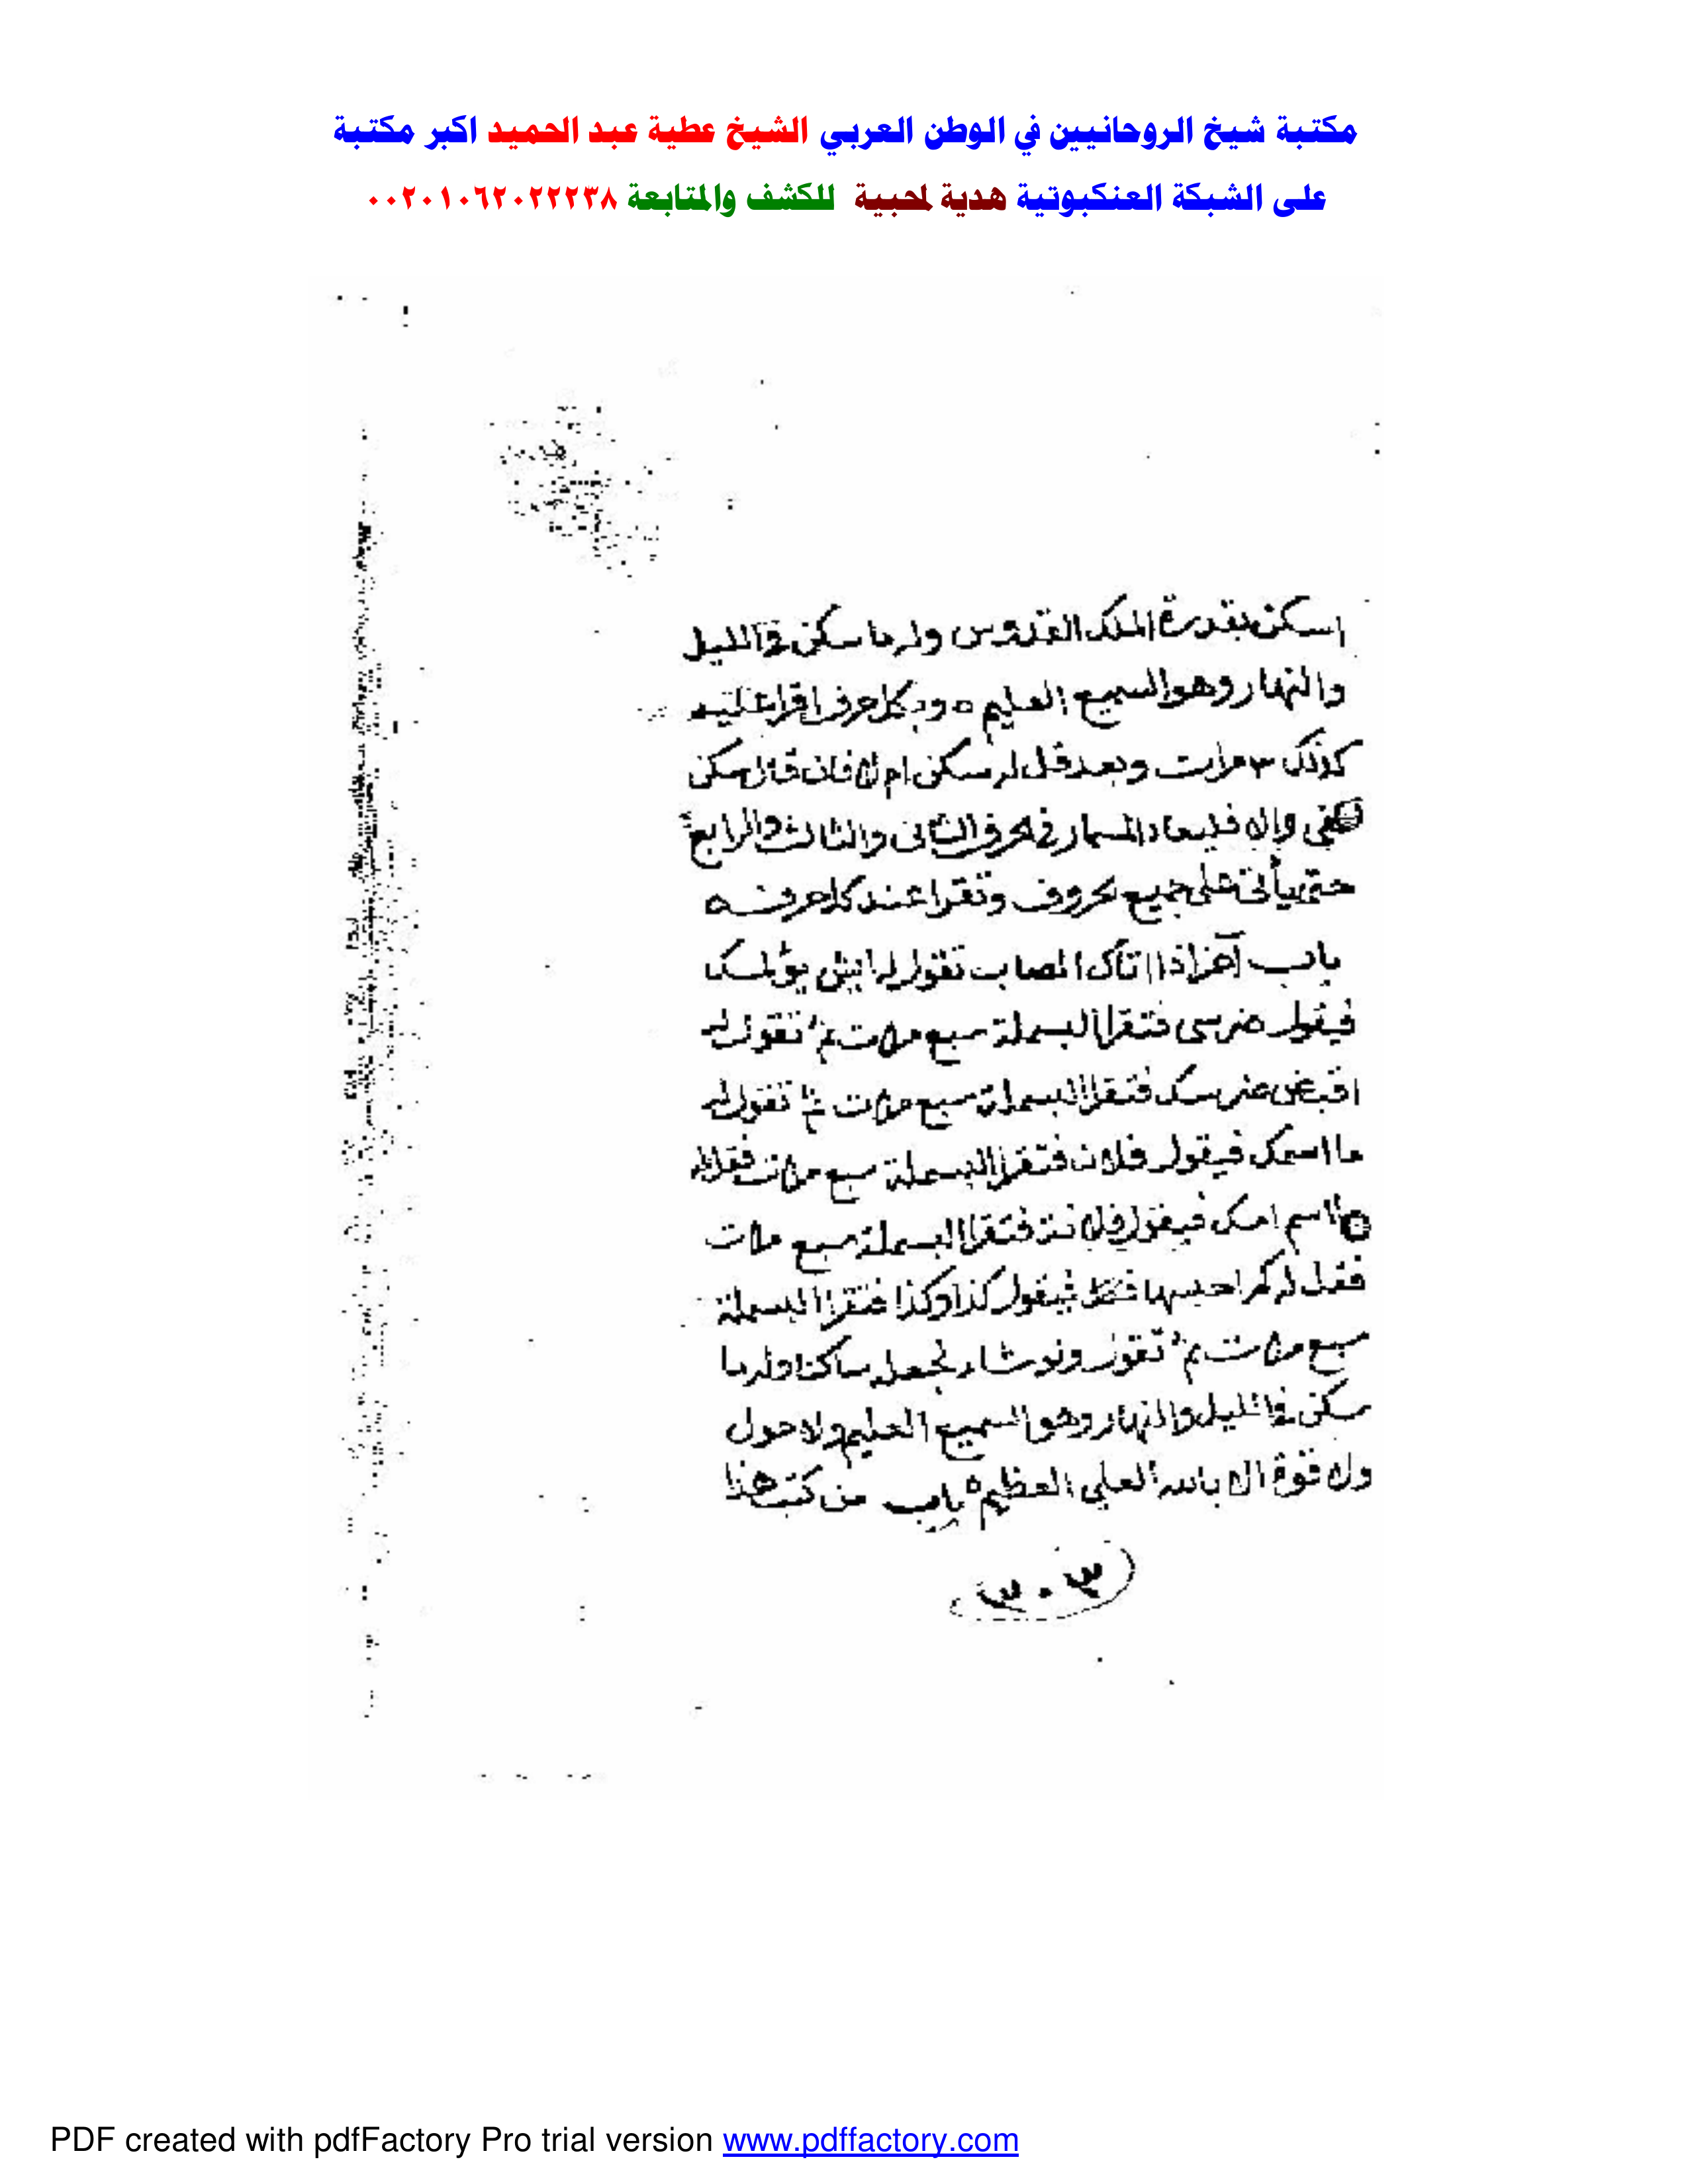 مكتبة شيخ الروحانيين في الوطن العربي الشيخ عطية عبد الحميد اكبر مكتبة
على الشبكة العنكبوتية هدية لمحبية للكشف والمتابعة ٠٠٢٠١٠٦٢٠٢٢٢٣٨
اسكن بقدرة الملك القدوس وله ما سكن في الليل
والنهار وهو السميع العليم ٥ وبكل حرف اقرا عليه
كذلك ٣ مرات وبعد قل له سكن ام لا فان قال سكن
والا فليعاد المسمار في لحرف الثاني والثالث والرابع
حتى يأتي على جميع لحروف وتقرا عند كل حرف ٥
باب آخر اذا اتاك المصاب تقول له ايش يؤلمك
فيقول ضرسى فتقرا البسملة سبع مرات ثم تقول له
اقبض ضرسك فتقرا البسملة سبع مرات ثم تقول له
ما اسمك فيقول فلان فتقرا البسملة سبع مرات فقل له
ما اسم امك فيقول فلانة فتقرا البسملة سبع مرات
فقل له كم احبسها فيقول كذا وكذا فتقرا البسملة
سبع مرات ثم تقول ولو شاء لجعله ساكنا وله ما
سكن في الليل والنهار وهو السميع العليم ولا حول
ولا قوة الا بالله العلي العظيم ٥ باب من كتب هذا
٣٠٣
PDF created with pdfFactory Pro trial version www.pdffactory.com